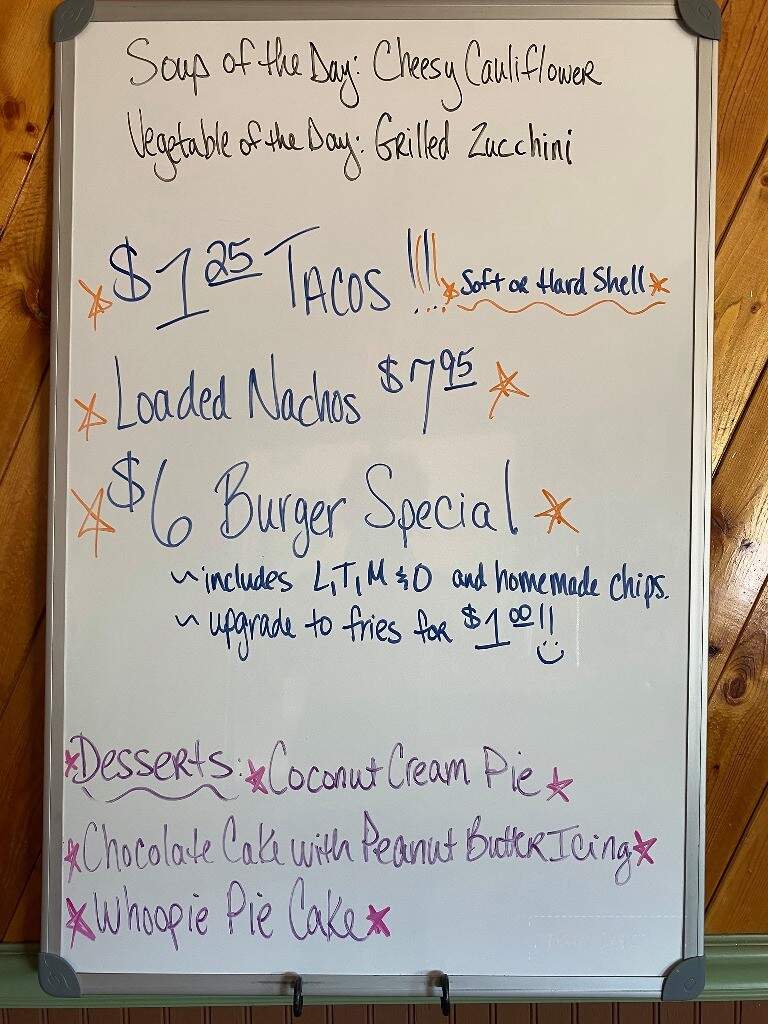 Soup of the Day: Cheesy Cauliflower
Vegetable of the Day: Grilled Zucchini
$1.25 Tacos !!!! Soft or Hard Shell
Loaded Nachos $7.95
$6 Burger Special
~ includes L, T, M & O and homemade chips.
~ upgrade to fries for $1.00!!
Desserts: Coconut Cream Pie
Chocolate Cake with Peanut Butter Icing
Whoopie Pie Cake